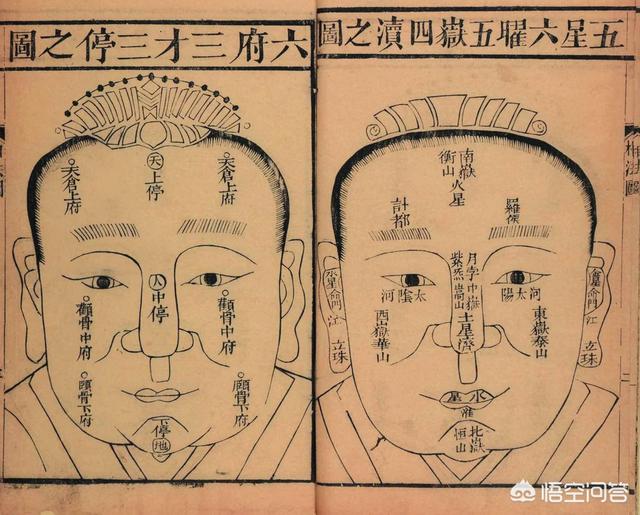 五星六曜五嶽四瀆之圖
南嶽火星
衡山
羅㬋
計都
月孛中嶽土星濟
紫炁嵩山
太陽
河
太陰河
東嶽泰山
西嶽華山
金星命門江立珠
水星命門江立珠
水星
淮
北嶽
恒山
六府三才三停之圖
天上停
天倉上府
天倉上府
人中停
顴骨中府
顴骨中府
頤骨下府
頤骨下府
停地
悟空问答